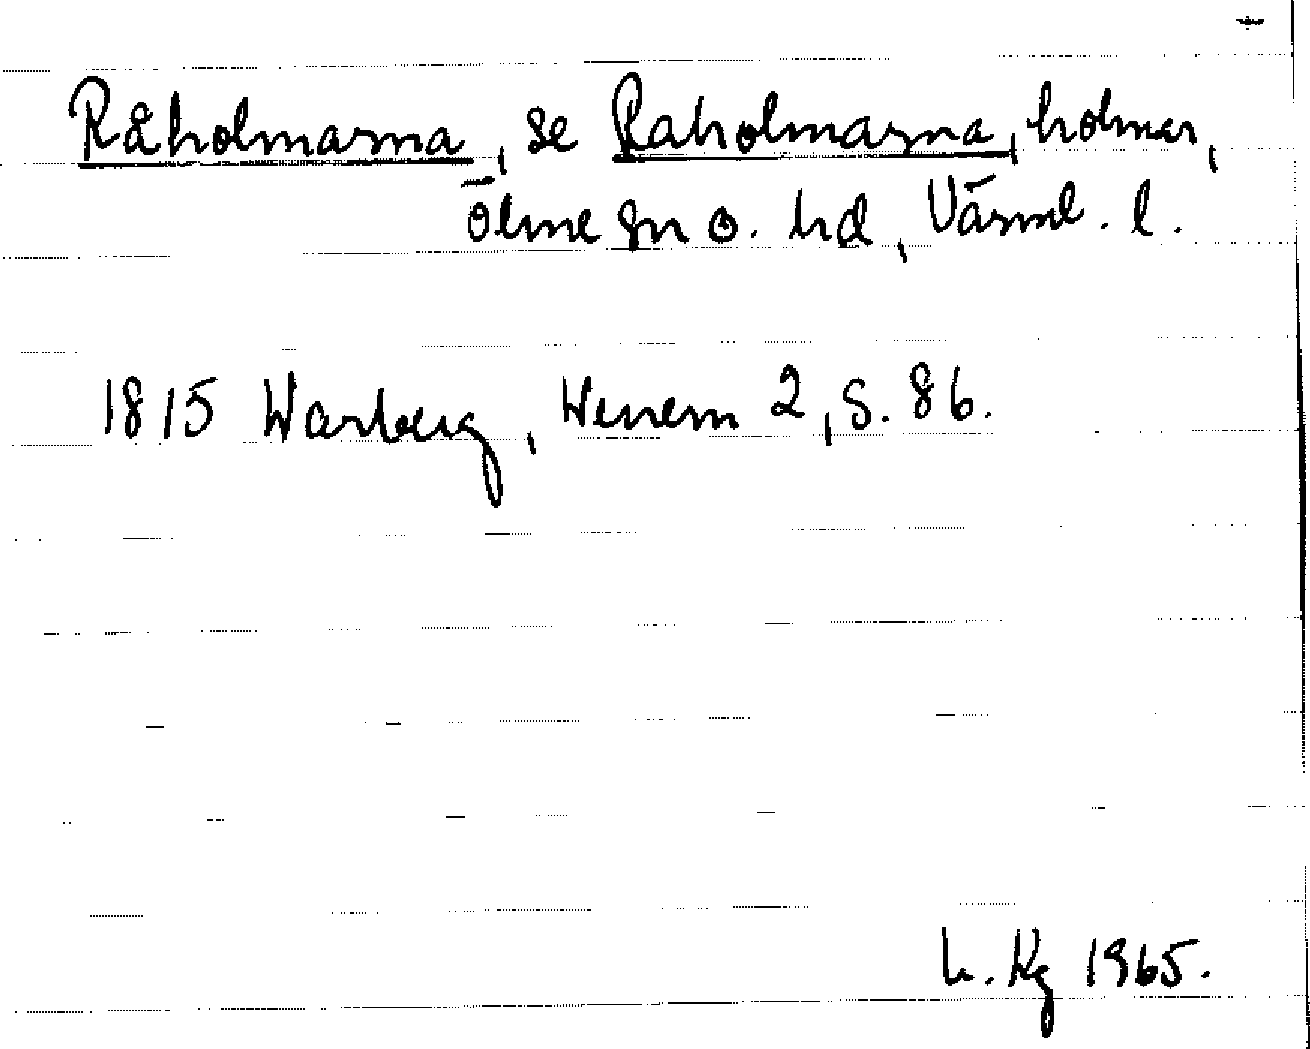 Råholmarna, se Raholmarna, holmar,
Ölme sn o. hd, Värml. l.
1815 Warberg, Wenern 2, S. 86.
h. Kg 1965.